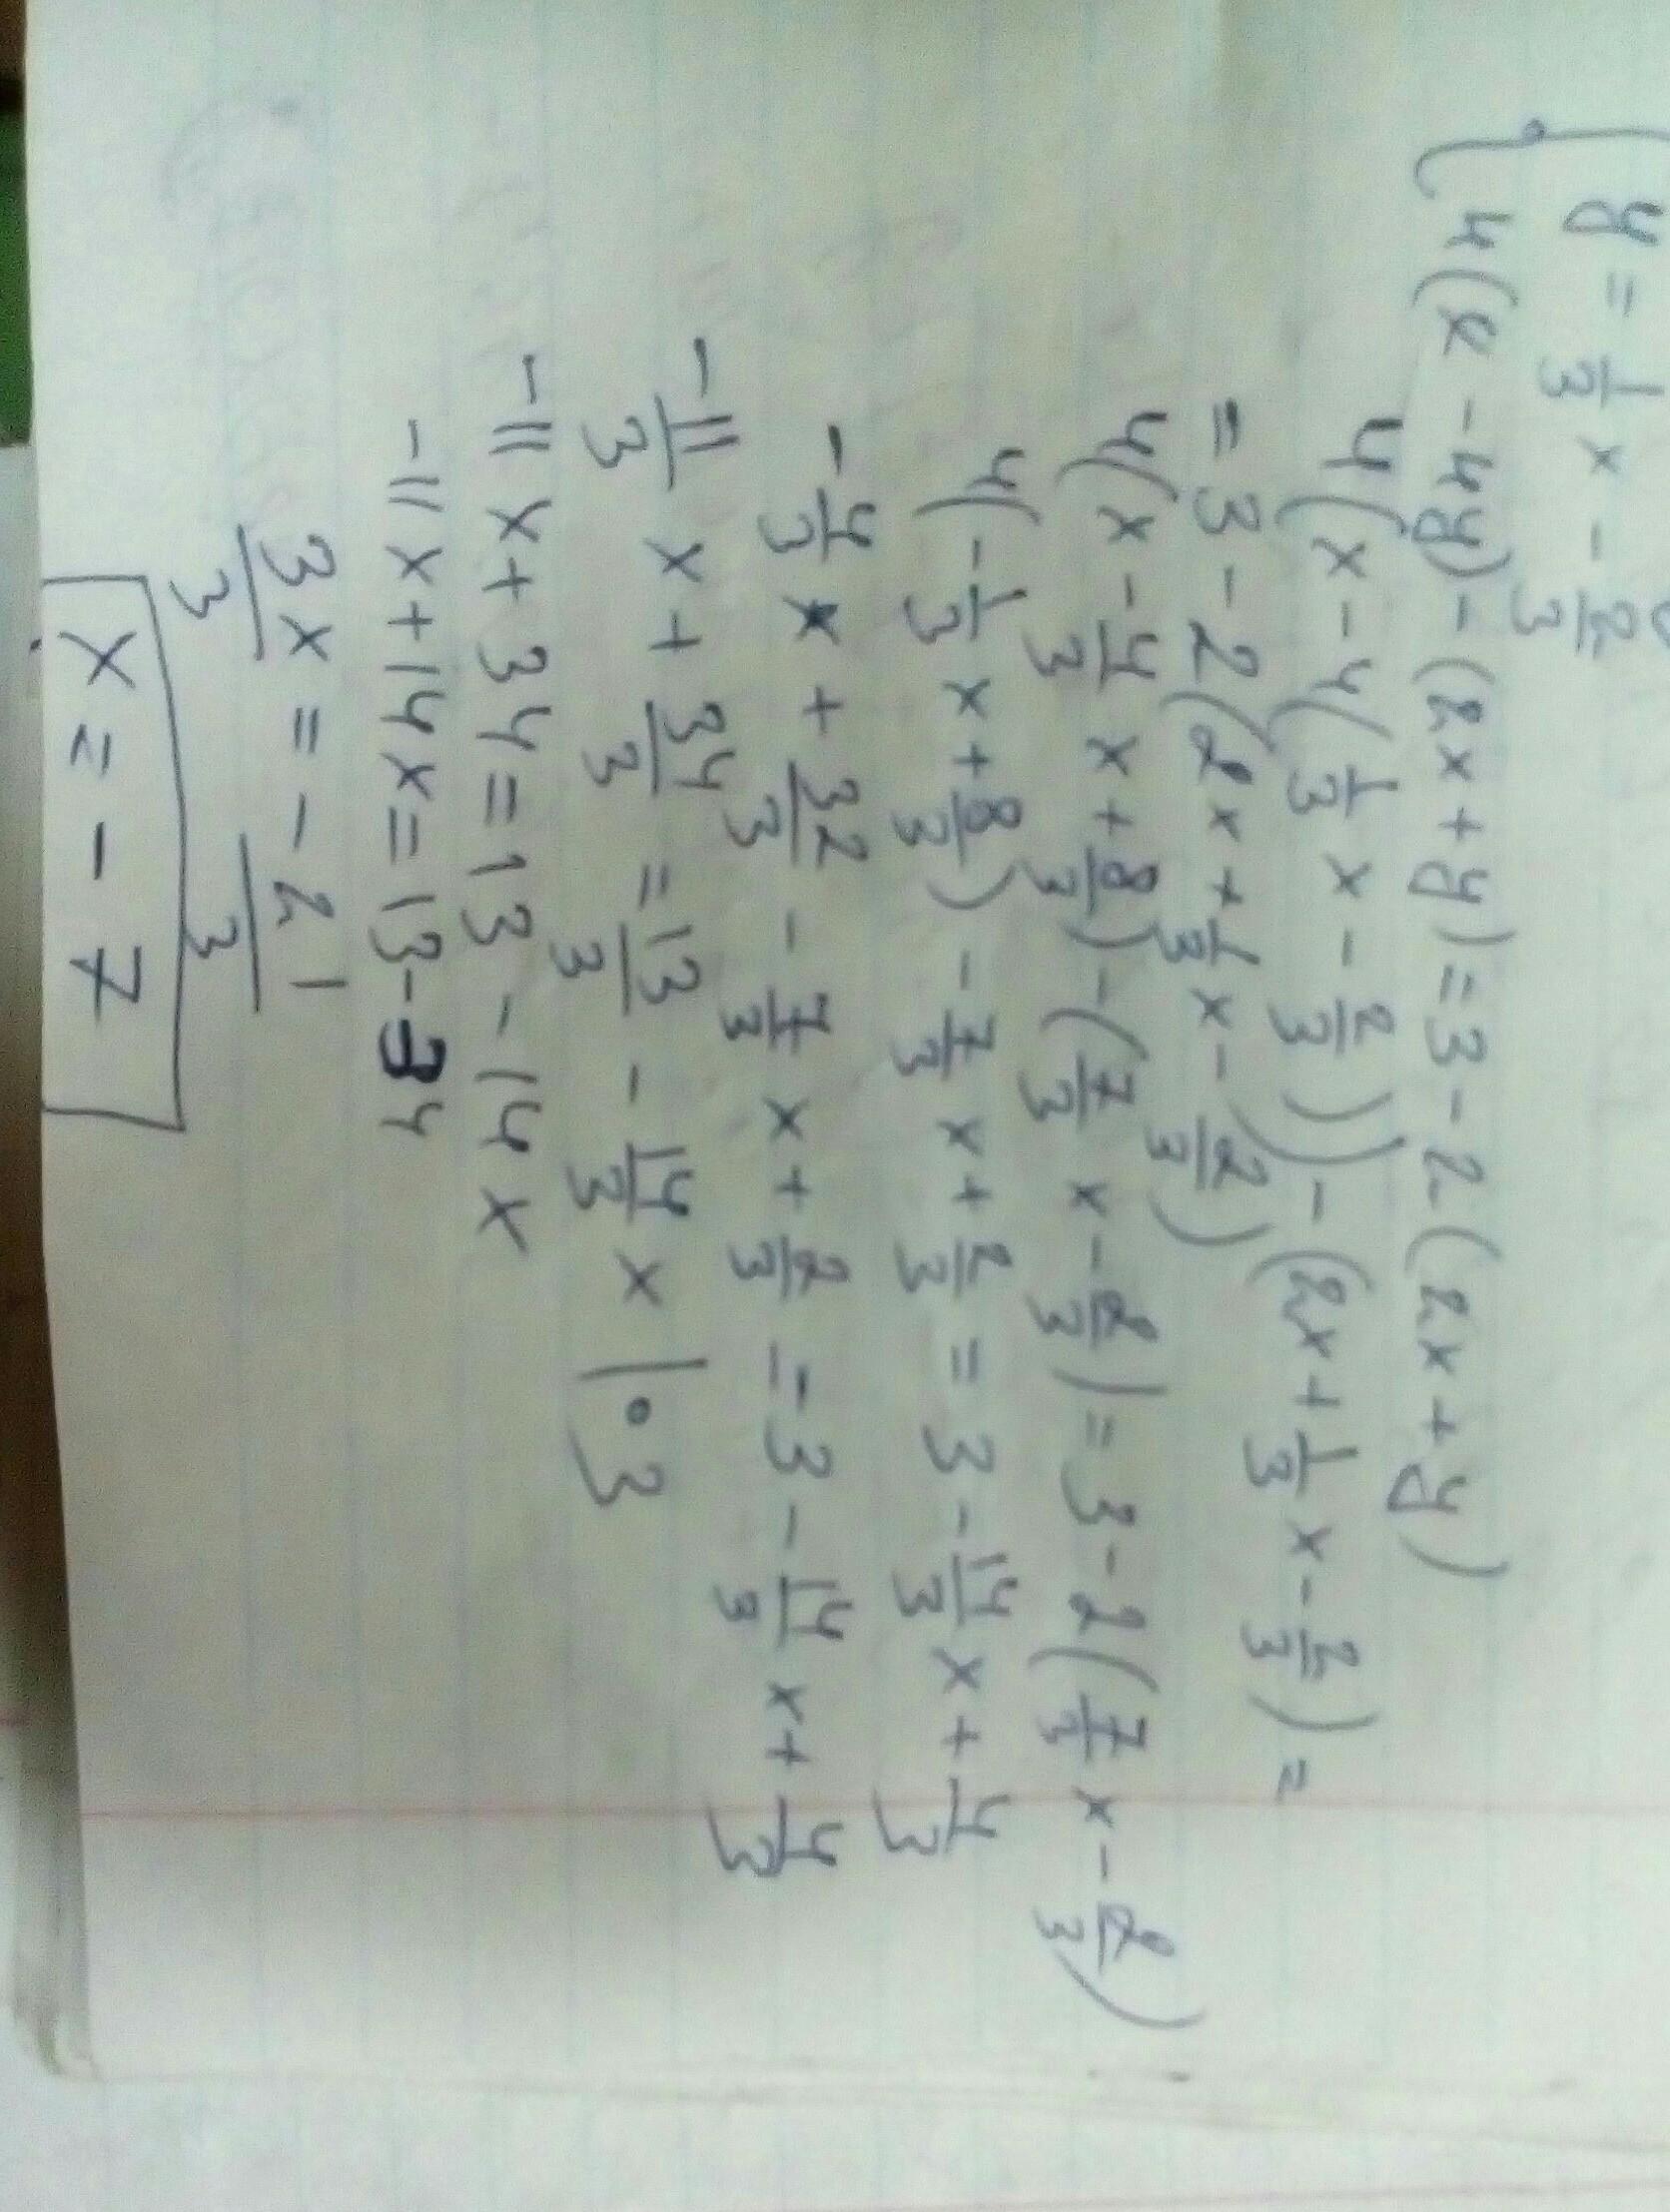 y = 1/3 x - 2/3
4(x - 4y) - (2x + y) = 3 - 2(2x + y)
4(x - 4(1/3 x - 2/3)) - (2x + 1/3 x - 2/3) =
= 3 - 2(2x + 1/3 x - 2/3)
4(x - 4/3 x + 8/3) - (7/3 x - 2/3) = 3 - 2(7/3 x - 2/3)
4(-1/3 x + 8/3) - 7/3 x + 2/3 = 3 - 14/3 x + 4/3
-4/3 x + 32/3 - 7/3 x + 2/3 = 3 - 14/3 x + 4/3
-11/3 x + 34/3 = 13/3 - 14/3 x | · 3
-11x + 34 = 13 - 14x
-11x + 14x = 13 - 34
3x/3 = -21/3
x = -7